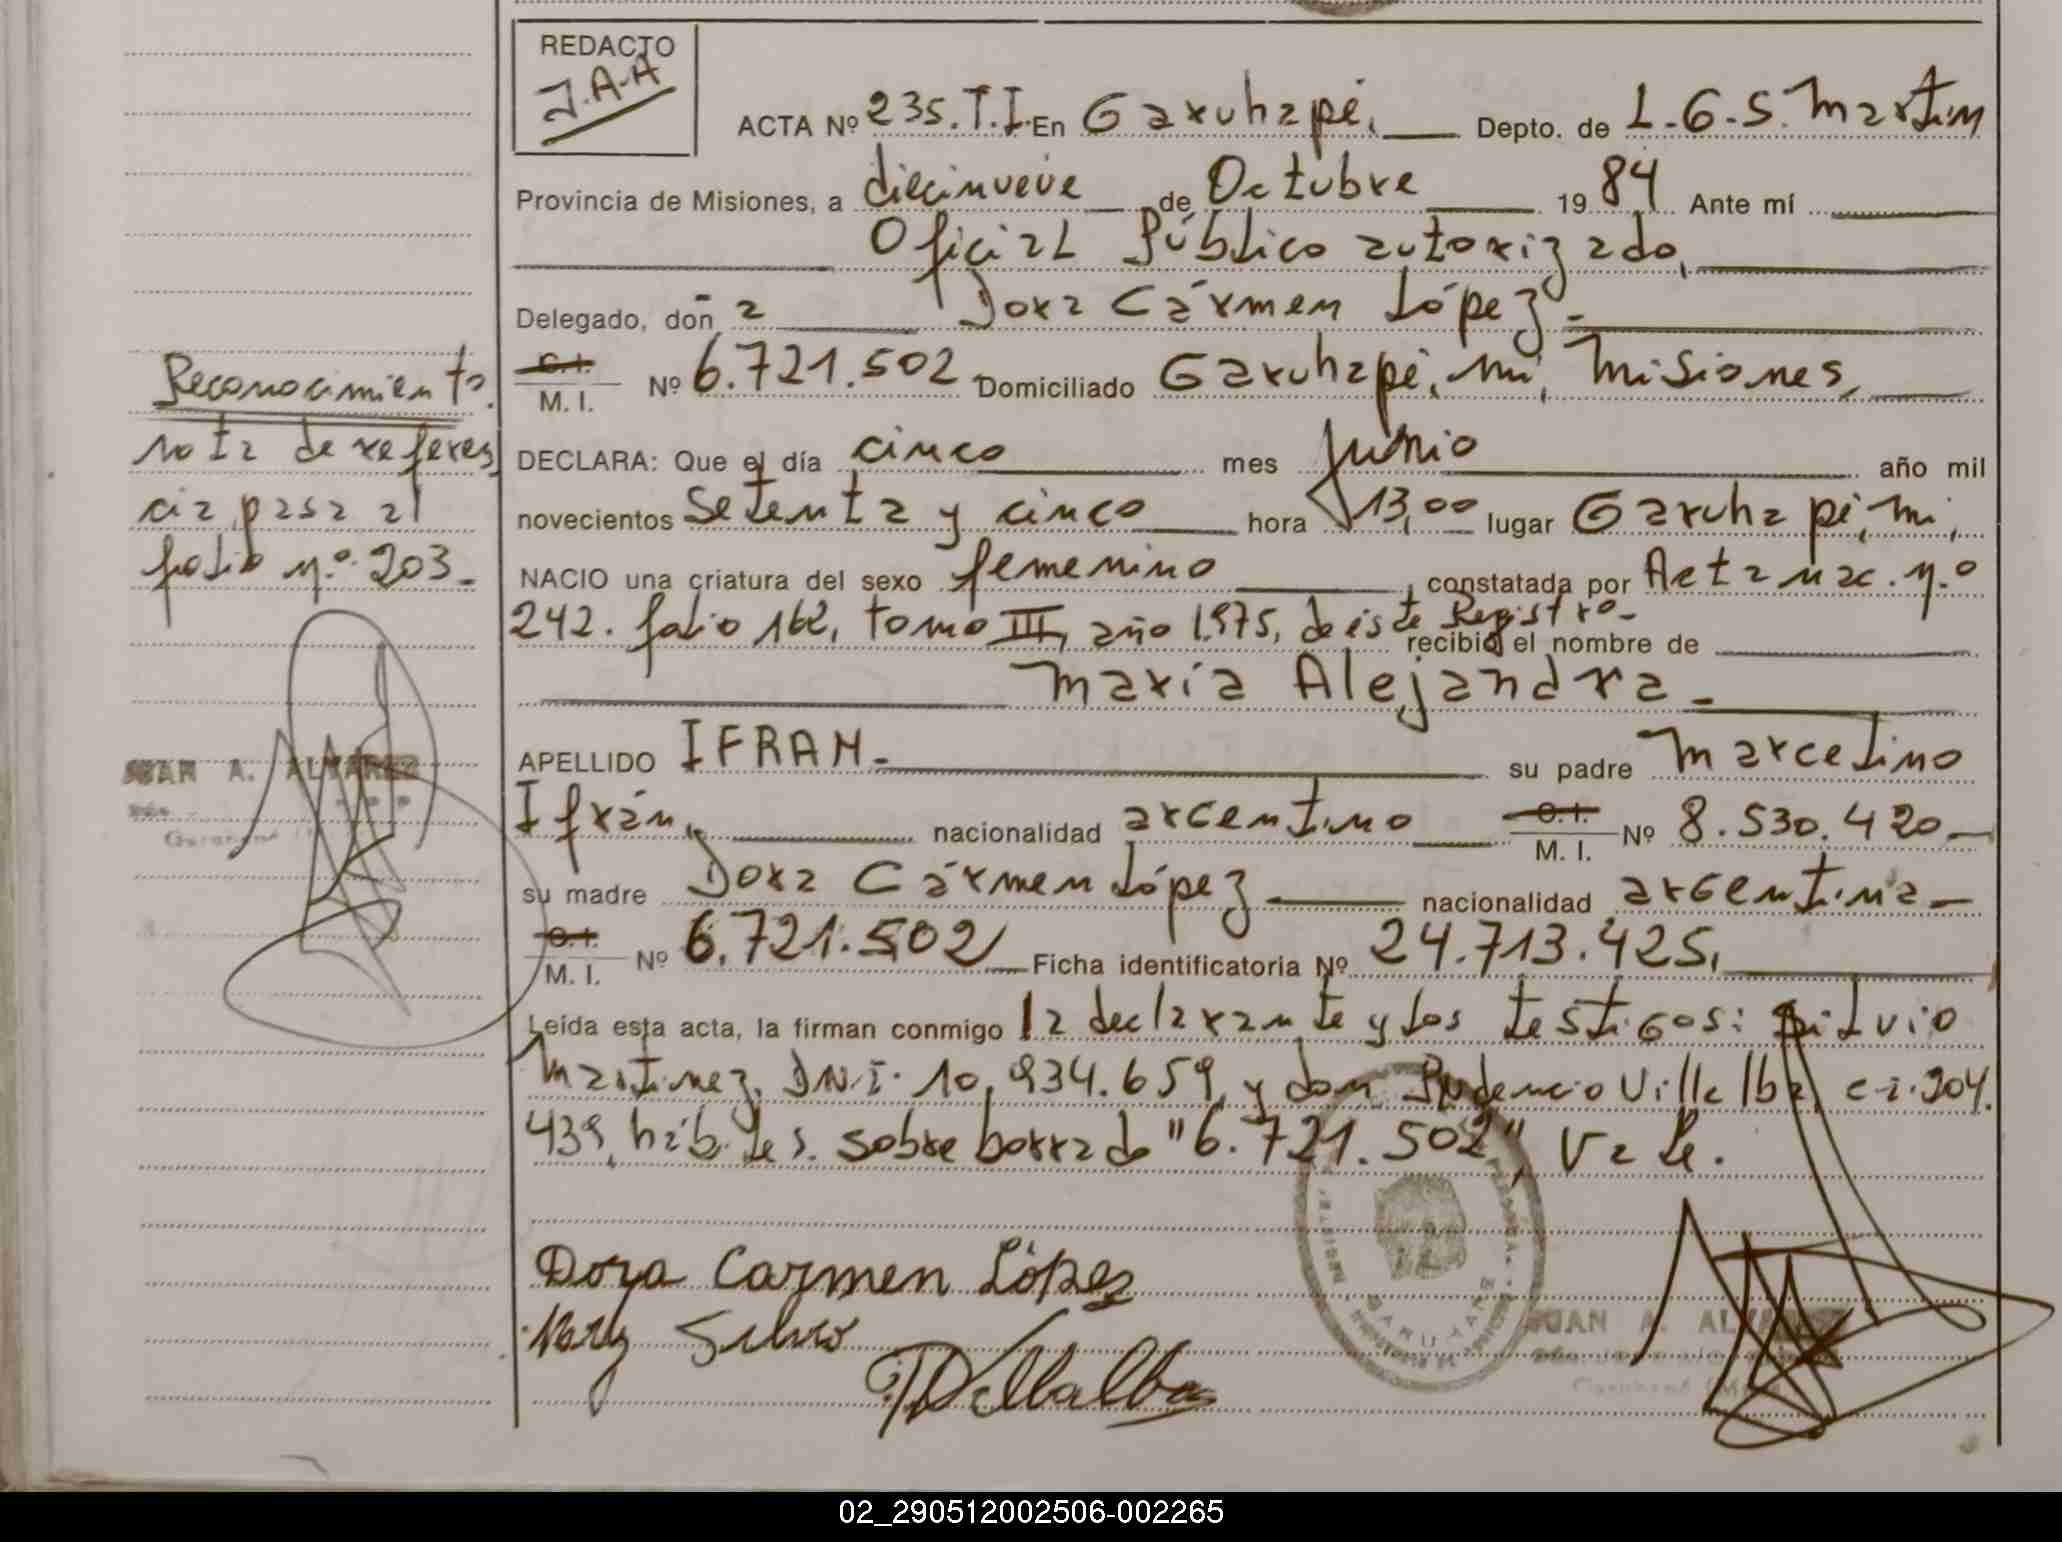 REDACTO
J.A-A
ACTA Nº 235.T.I. En Garuhapé. Depto. de L.G.S. Martin
Provincia de Misiones, a diecinueve de Octubre 1984 Ante mí
Oficial Público autorizado,
Delegado, doñ a Dora Cármen López.-
C.I. M. I. Nº 6.721.502 Domiciliado Garuhapé, mi, Misiones,
DECLARA: Que el día cinco mes Junio año mil
novecientos Setenta y cinco hora 13,00 lugar Garuhapé, mi,
NACIO una criatura del sexo femenino, constatada por Acta nac. n.º
242. folio 162, tomo III, año 1.975, de éste Registro-
recibió el nombre de
María Alejandra.-
APELLIDO IFRAN.- su padre Marcelino
Ifrán, nacionalidad argentino C.I. M. I. Nº 8.530.420-
su madre Dora Cármen López nacionalidad argentina-
C.I. M. I. Nº 6.721.502 Ficha identificatoria Nº 24.713.425,
Leída esta acta, la firman conmigo la declarante y los testigos: Silvio
Martinez, DN.I. 10.934.659, y don Pudencio Villalba, c.i. 204.
439, hábiles. Sobre borrado "6.721.502", Vale.
Dora Carmen López
Silvio
Villalba
JUAN A. ALVAREZ
Reconocimiento.
nota de referen
cia pasa al
folio n.º 203.-
JUAN A. ALVAREZ
02_290512002506-002265